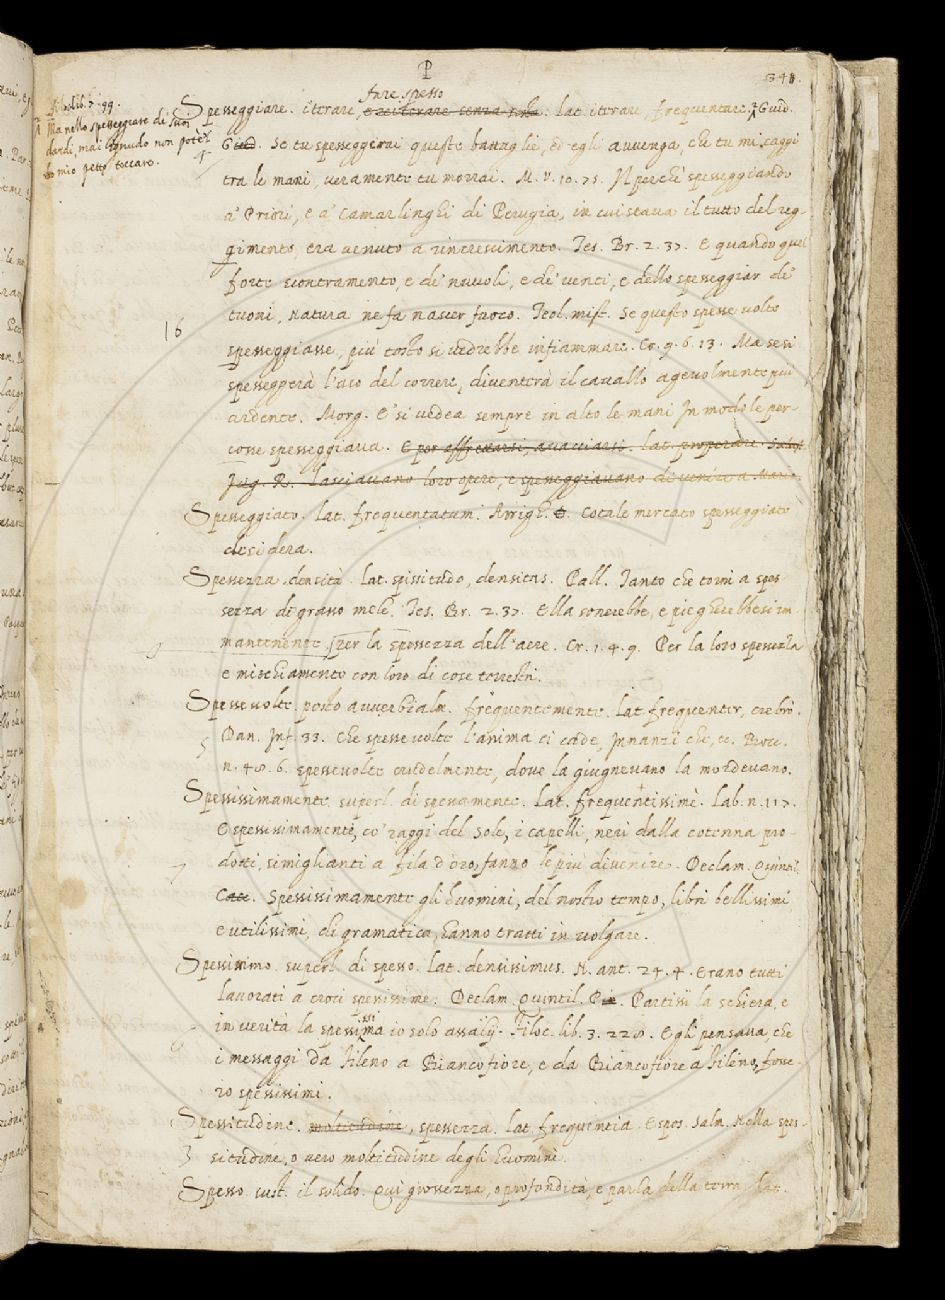 P
341.
Filoc. lib. 7. 99.
Ma nello spesseggiare di suoi
dardi, mai ignudo non potè il
mio petto toccare.
fare spesso
Spesseggiare. iterare, e reiterare senza. lat. iterare, frequentare. Guid.
G. Se tu spesseggerai queste battaglie, ed egli avvenga, che tu mi caggi
tra le mani, veramente tu morrai. M. V. 10. 75. Il perchè spesseggiando
a' Priori, e a' Camarlinghi di Perugia, in cui stava il tutto del reg-
gimento, era venuto a rincrescimento. Tes. Br. 2. 37. E quando quel
forte scontramento, e de' nuvoli, e de' venti, e dello spesseggiar de'
tuoni, natura ne fa nascer fuoco. Teol. mist. Se questo spesse volte
16
spesseggiasse, più tosto si vedrebbe infiammare. Cr. 9. 6. 13. Ma se si
spesseggerà l'uso del correre, diventerà il cavallo agevolmente più
ardente. Morg. E' si vedea sempre in alto le mani In modo le per-
cosse spesseggiava. E per affrettarsi, avacciarsi. lat. properare. Salust.
Jug. R. Lasciavano loro opere, e spesseggiavano di venire a Mario.
Spesseggiato. lat. frequentatum. Arrigh. Cotale mercato spesseggiato
desidera.
Spessezza. densità. lat. spissitudo, densitas. Pall. Tanto che torni a spes-
sezza di grasso mele. Tes. Br. 2. 37. Ella sonerebbe, e piegherebbesi im-
mantenente, per la spessezza dell'aere. Cr. 1. 4. 9. Per la loro spessezza
e mischiamento con loro di cose terrestri.
Spesse volte. posto avverbialm. frequentemente. lat. frequenter, crebrò.
5
Dan. Inf. 33. Che spesse volte l'anima ci cade, Innanzi che, ec. Bocc.
n. 48. 6. spesse volte crudelmente, dove la giugnevano la mordevano.
Spessissimamente. superl. di spessamente. Lat. frequentissimè. Lab. n. 117.
O spessissimamente, co' raggi del Sole, i capelli, neri dalla cotenna pro-
7
dotti, simiglianti a fila d'oro, fanno le più divenire. Declam. Quintil.
C. Spessissimamente gli huomini, del nostro tempo, libri bellissimi
e utilissimi, di gramatica, hanno tratti in volgare.
Spessissimo. superl. di spesso. lat. densissimus. N. ant. 24. 4. Erano tutti
lavorati a croci spessissime. Declam. Quintil. P. Partissi la schiera, e
in verità la spessissima io solo assalij. Filoc. lib. 3. 228. Egli pensava, che
i messaggi da Fileno a Biancofiore, e da Biancofiore a Fileno, fosse-
ro spessissimi.
Spessitudine. moltitudine, spessezza. lat. frequentia. Espos. Salm. Nella spes-
3
situdine, o vero moltitudine degli huomini.
Spesso. sust. il solido. Qui grossezza, o profondità, e parla della terra. lat.